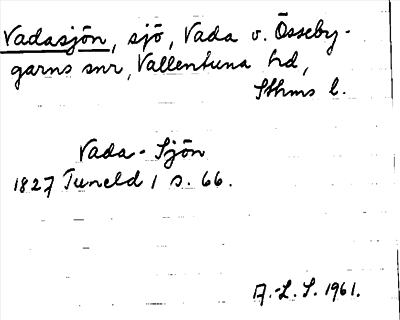 Vadasjön, sjö, Vada o. Össeby-
garns snr, Vallentuna hd,
Sthms l.
Vada-Sjön
1827 Tuneld 1 s. 66.
A.-L. S. 1961.